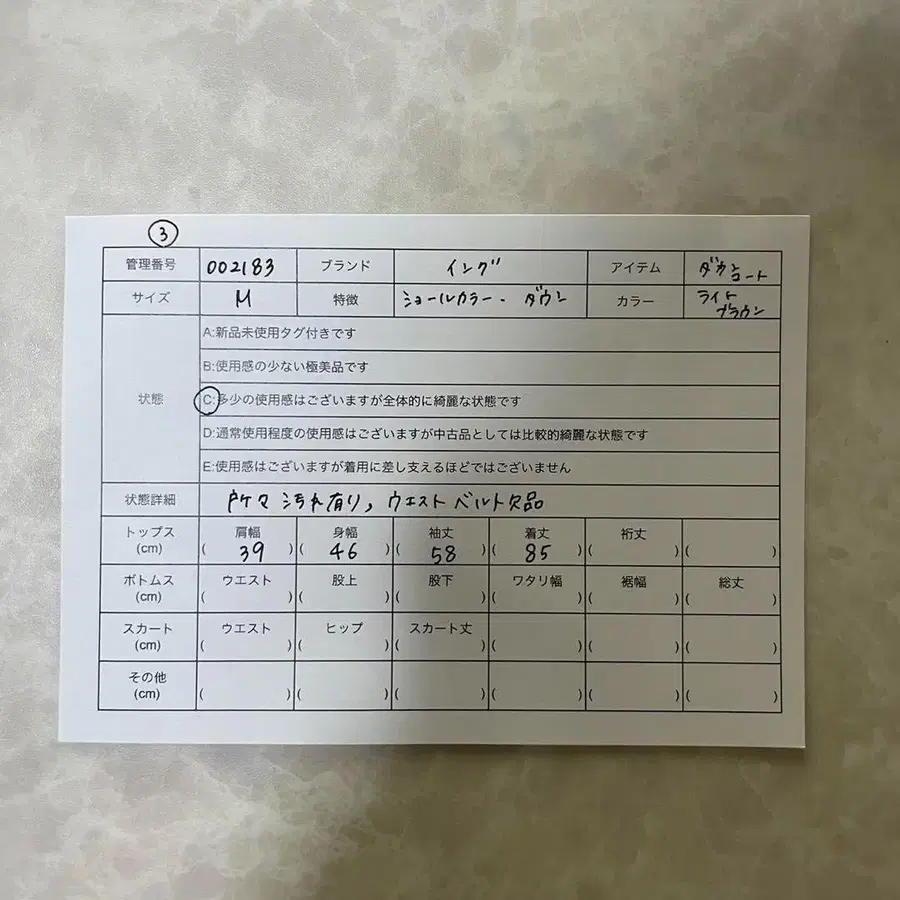 ③
管理番号 002183 ブランド イング アイテム ダウンコート
サイズ M 特徴 ショールカラー・ダウン カラー ライトブラウン
状態
A:新品未使用タグ付きです
B:使用感の少ない極美品です
C:多少の使用感はございますが全体的に綺麗な状態です
D:通常使用程度の使用感はございますが中古品としては比較的綺麗な状態です
E:使用感はございますが着用に差し支えるほどではございません
状態詳細 所々汚れ有り，ウエストベルト欠品
トップス (cm) 肩幅 (39) 身幅 (46) 袖丈 (58) 着丈 (85) 裄丈 ( ) ( )
ボトムス (cm) ウエスト ( ) 股上 ( ) 股下 ( ) ワタリ幅 ( ) 裾幅 ( ) 総丈 ( )
スカート (cm) ウエスト ( ) ヒップ ( ) スカート丈 ( ) ( ) ( ) ( )
その他 (cm) ( ) ( ) ( ) ( ) ( ) ( )